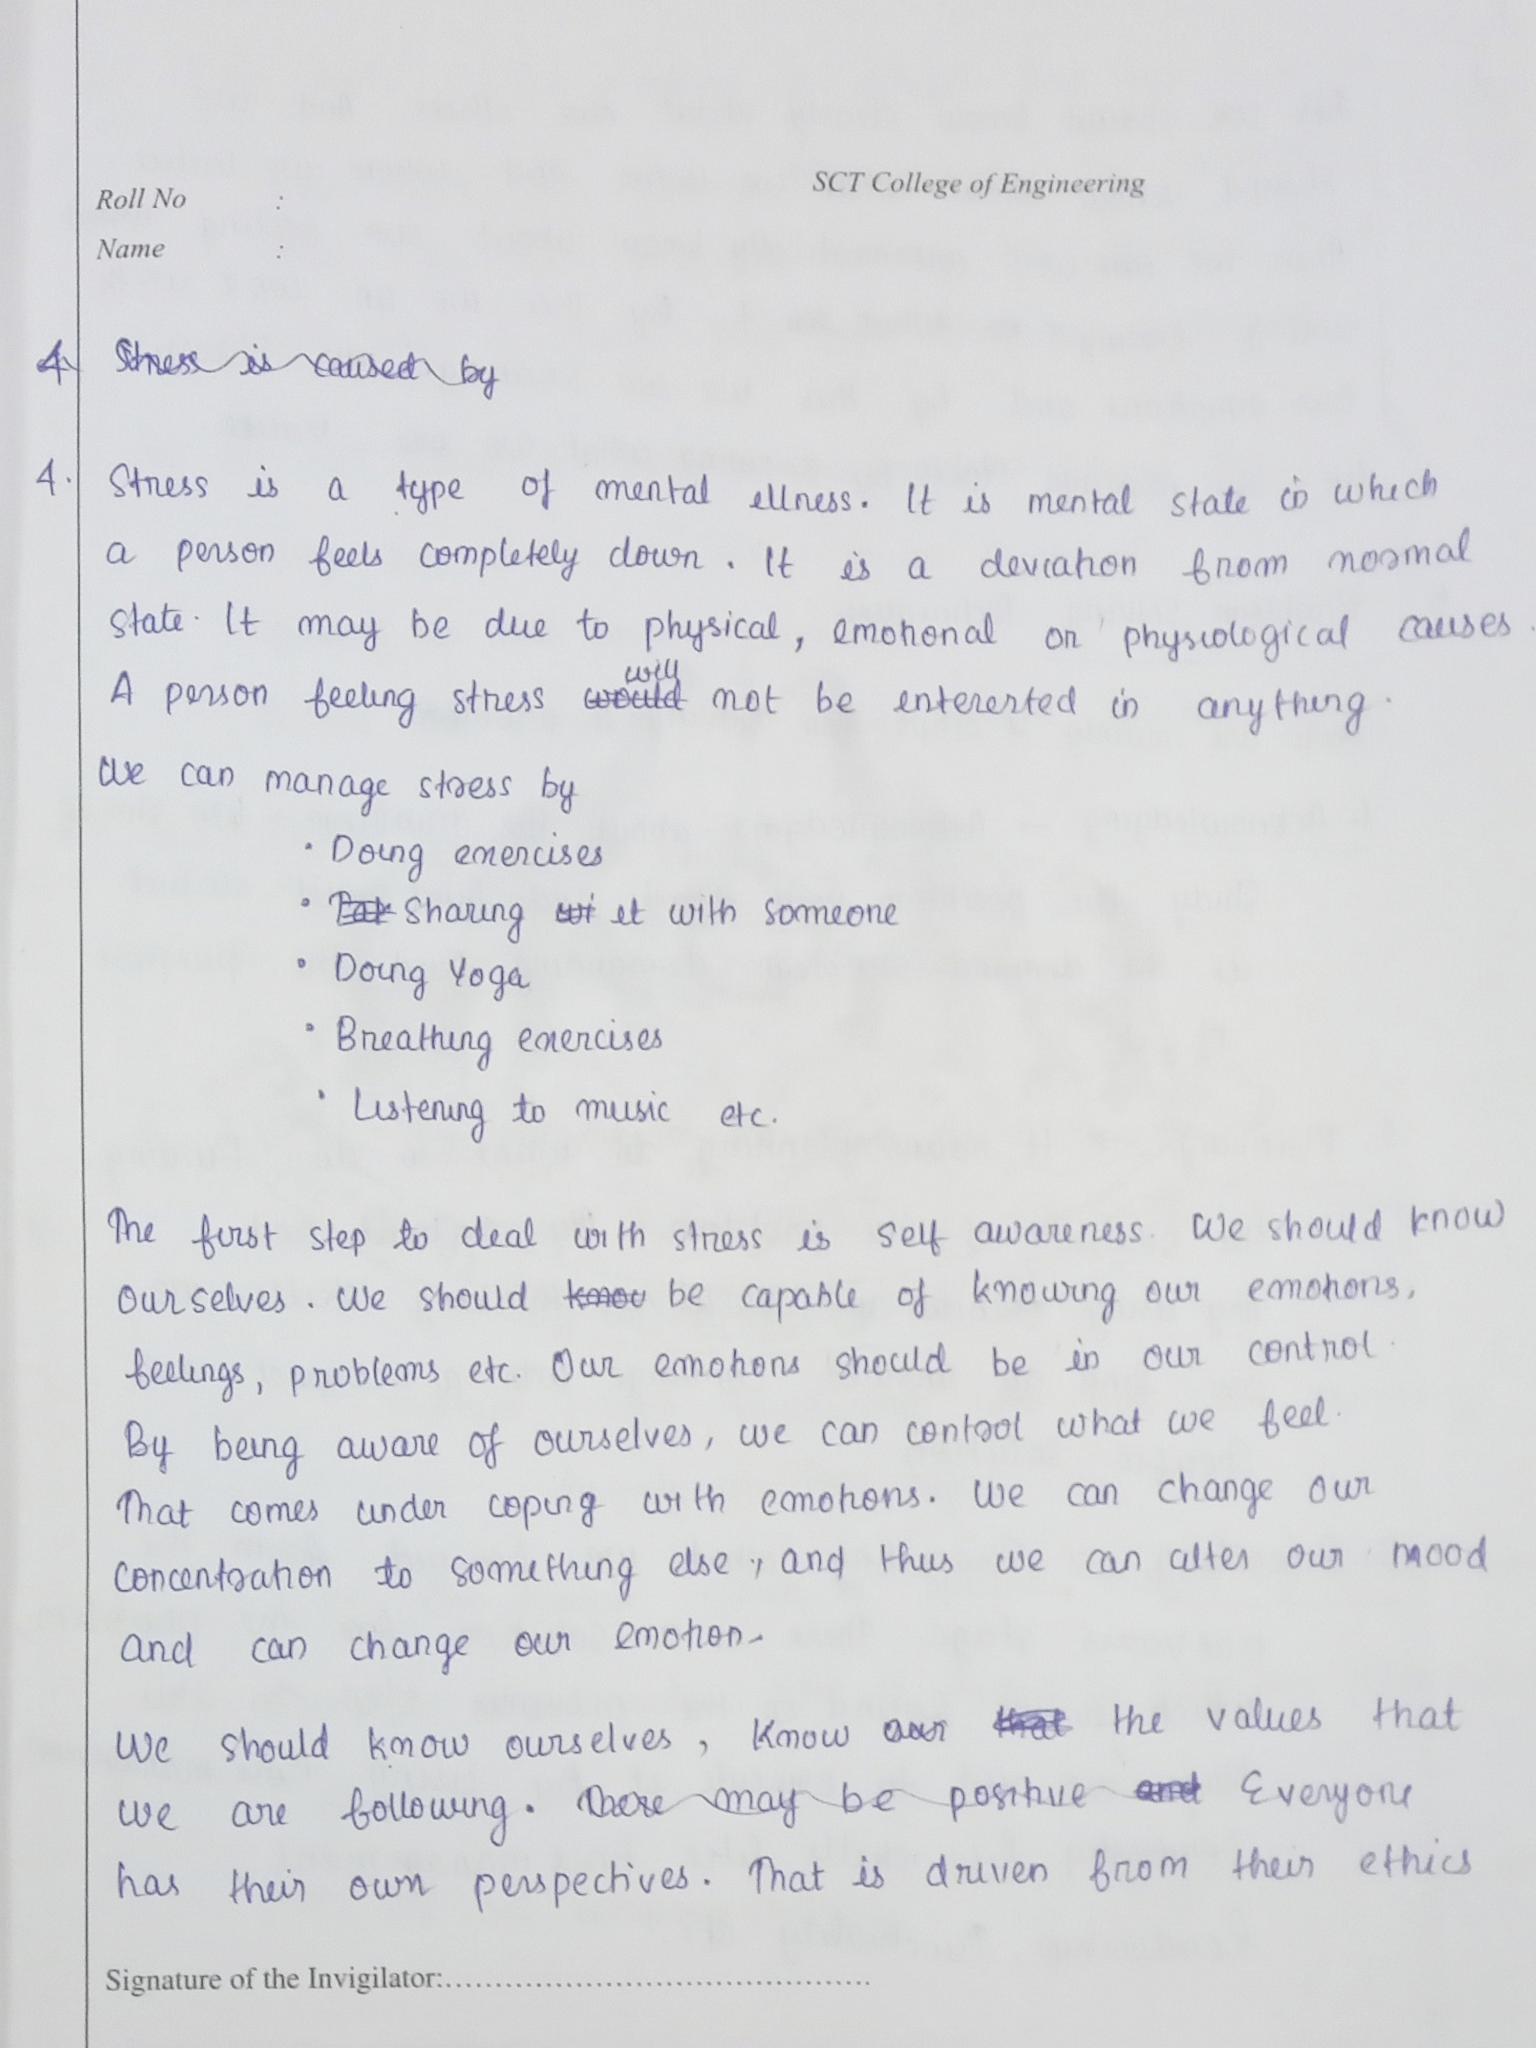 SCT College of Engineering
Roll No :
Name :
4. Stress is caused by
4. Stress is a type of mental illness. It is mental state in which
a person feels completely down. It is a deviation from normal
state. It may be due to physical, emotional or physiological causes.
will
A person feeling stress would not be enterested in anything.
We can manage stress by
• Doing exercises
• Sharing wi it with someone
• Doing Yoga
• Breathing exercises
• Listening to music etc.
The first step to deal with stress is self awareness. We should know
ourselves. We should know be capable of knowing our emotions,
feelings, problems etc. Our emotions should be in our control.
By being aware of ourselves, we can control what we feel.
That comes under coping with emotions. We can change our
concentration to something else, and thus we can alter our mood
and can change our emotion.
We should know ourselves, know our that the values that
we are following. There may be positive and Everyone
has their own perspectives. That is driven from their ethics
Signature of the Invigilator:..........................................